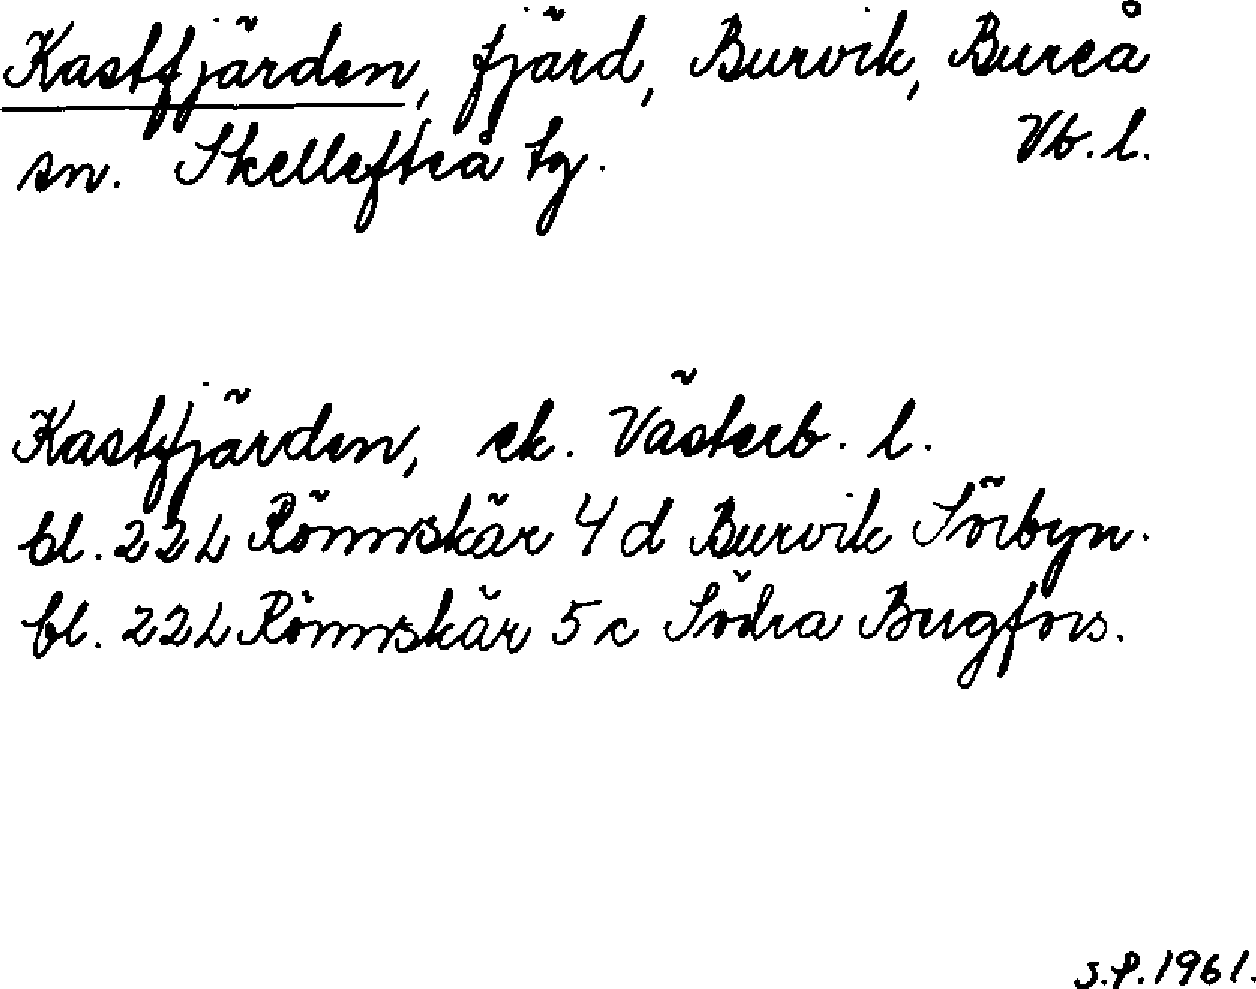 Kastfjärden, fjärd, Burvik, Bureå
sn. Skellefteå tg. Vb. l.
Kastfjärden, ek. Västerb. l.
bl. 22L Rönnskär 4 d Burvik Sörbyn.
bl. 22L Rönnskär 5 c Södra Bergfors.
J.P. 1961.